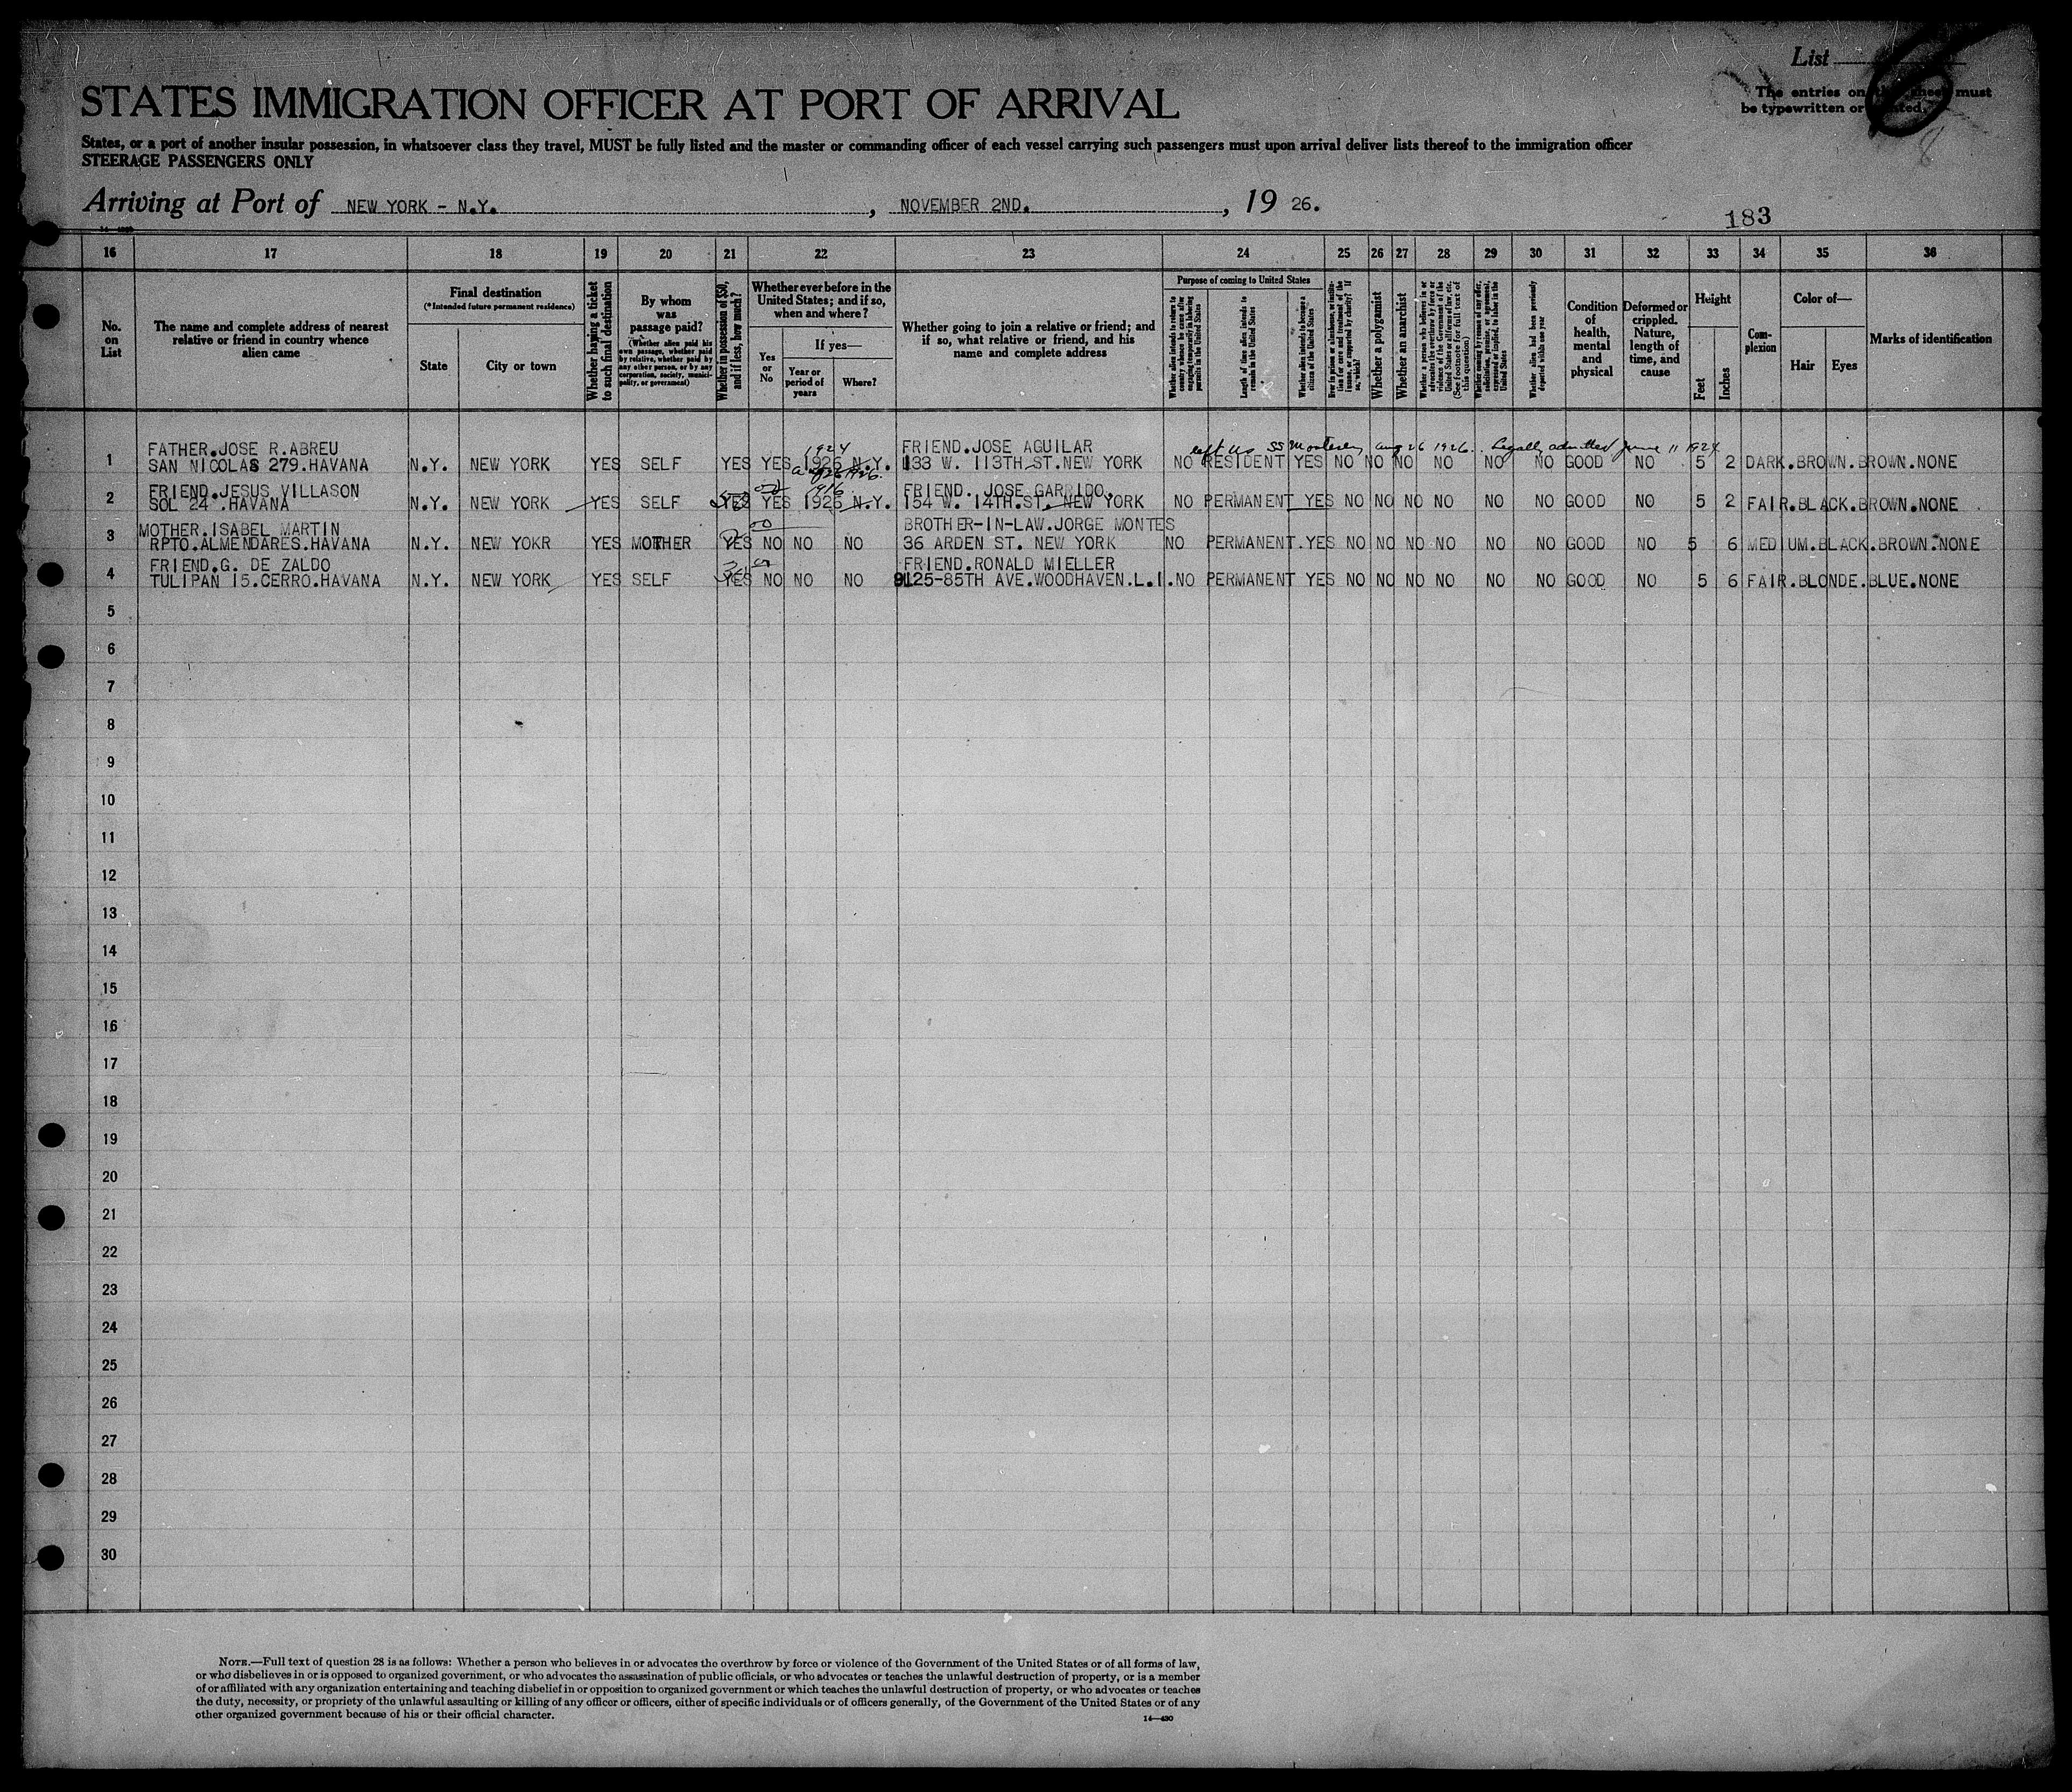 List
The entries on this sheet must
be typewritten or printed.
8
STATES IMMIGRATION OFFICER AT PORT OF ARRIVAL
States, or a port of another insular possession, in whatsoever class they travel, MUST be fully listed and the master or commanding officer of each vessel carrying such passengers must upon arrival deliver lists thereof to the immigration officer
STEERAGE PASSENGERS ONLY
Arriving at Port of NEW YORK - N.Y. , NOVEMBER 2ND. , 19 26.
183
16 17 18 19 20 21 22 23 24 25 26 27 28 29 30 31 32 33 34 35 36
No. on List
The name and complete address of nearest relative or friend in country whence alien came
Final destination
(*Intended future permanent residence)
State
City or town
Whether having a ticket to such final destination
By whom was passage paid?
(Whether alien paid his own passage, whether paid by relative, whether paid by any other person, or by any corporation, society, municipality, or government)
Whether in possession of $50, and if less, how much?
Whether ever before in the United States; and if so, when and where?
Yes or No
If yes—
Year or period of years
Where?
Whether going to join a relative or friend; and if so, what relative or friend, and his name and complete address
Purpose of coming to United States
Length of time alien intends to remain in the United States
Whether alien intends to become a citizen of the United States
Whether a polygamist
Whether an anarchist
Whether alien had been previously deported within one year
Condition of health, mental and physical
Deformed or crippled. Nature, length of time, and cause
Height
Feet
Inches
Complexion
Color of—
Hair
Eyes
Marks of identification
1924
left US SS Monterey Aug 26 1926. Legally admitted June 11 1924
FATHER.JOSE R.ABREU FRIEND.JOSE AGUILAR
1 SAN NICOLAS 279.HAVANA N.Y. NEW YORK YES SELF YES YES 1926 N.Y. 133 W. 113TH ST.NEW YORK NO RESIDENT YES NO NO NO NO NO NO GOOD NO 5 2 DARK.BROWN.BROWN.NONE
1916
FRIEND.JESUS VILLASON FRIEND. JOSE GARRIDO.
2 SOL 24 .HAVANA N.Y. NEW YORK YES SELF YES YES 1926 N.Y. 154 W. 14TH.ST. NEW YORK NO PERMANENT YES NO NO NO NO NO NO GOOD NO 5 2 FAIR.BLACK.BROWN.NONE
MOTHER.ISABEL MARTIN BROTHER-IN-LAW.JORGE MONTES
3 RPTO.ALMENDARES.HAVANA N.Y. NEW YOKR YES MOTHER YES NO NO NO 36 ARDEN ST. NEW YORK NO PERMANENT.YES NO NO NO NO NO NO GOOD NO 5 6 MEDIUM.BLACK.BROWN.NONE
FRIEND.G. DE ZALDO FRIEND.RONALD MIELLER
4 TULIPAN 15.CERRO.HAVANA N.Y. NEW YORK YES SELF YES NO NO NO 9125-85TH AVE.WOODHAVEN.L.I. NO PERMANENT YES NO NO NO NO NO NO GOOD NO 5 6 FAIR.BLONDE.BLUE.NONE
5
6
7
8
9
10
11
12
13
14
15
16
17
18
19
20
21
22
23
24
25
26
27
28
29
30
NOTE.—Full text of question 28 is as follows: Whether a person who believes in or advocates the overthrow by force or violence of the Government of the United States or of all forms of law,
or who disbelieves in or is opposed to organized government, or who advocates the assassination of public officials, or who advocates or teaches the unlawful destruction of property, or is a member
of or affiliated with any organization entertaining and teaching disbelief in or opposition to organized government or which teaches the unlawful destruction of property, or who advocates or teaches
the duty, necessity, or propriety of the unlawful assaulting or killing of any officer or officers, either of specific individuals or of officers generally, of the Government of the United States or of any
other organized government because of his or their official character.
14—430